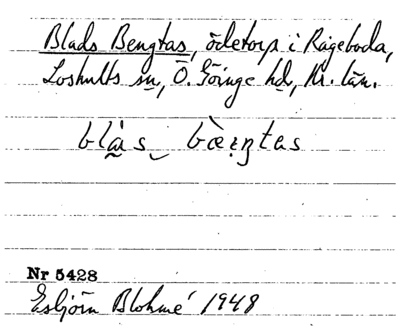 Blads Bengtas, ödetorp i Rågeboda,
Loshults sn, Ö. Göinge hd, Kr. län.
Nr 5428
Esbjörn Blohmé 1948